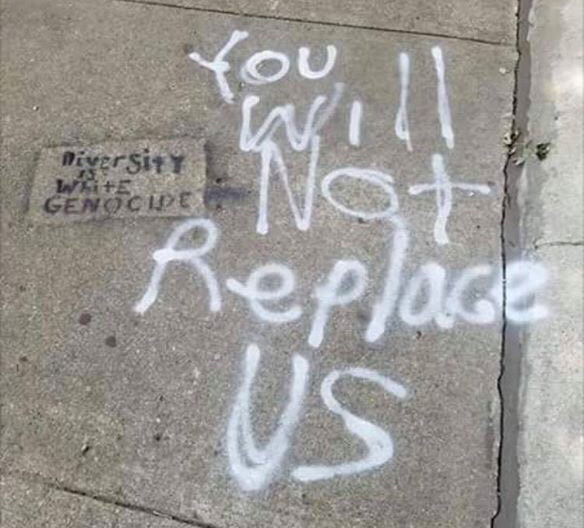 You
Will
Not
Replace
US
Diversity
IS
WHiTE
GENOCIDE